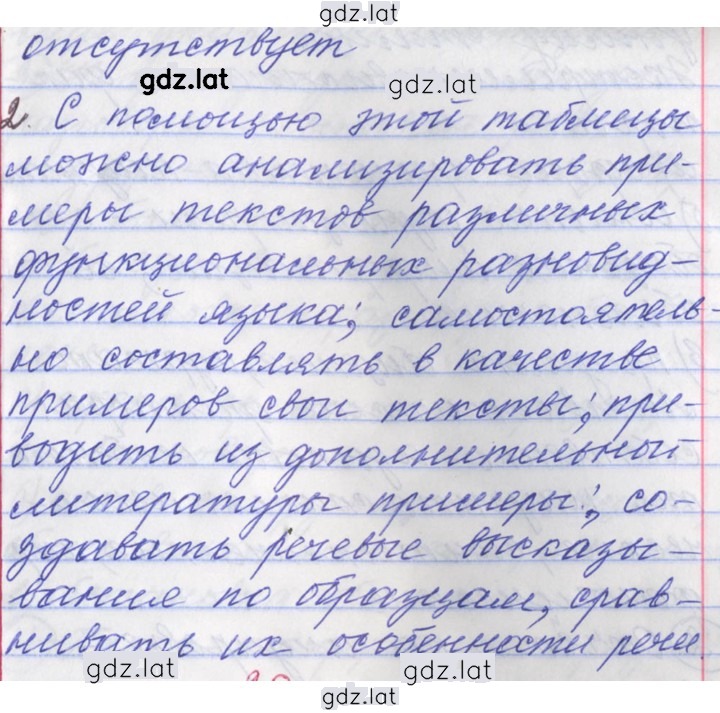 gdz.lat
отсутствует
gdz.lat
gdz.lat
2. С помощью этой таблицы
можно анализировать при-
меры текстов различных
функциональных разновид-
ностей языка; самостоятель-
но составлять в качестве
примеров свои тексты; при-
водить из дополнительной
литературы примеры; со-
здавать речевые высказы-
вание по образцам, срав-
нивать их особенности речи.
gdz.lat
gdz.lat
gdz.lat